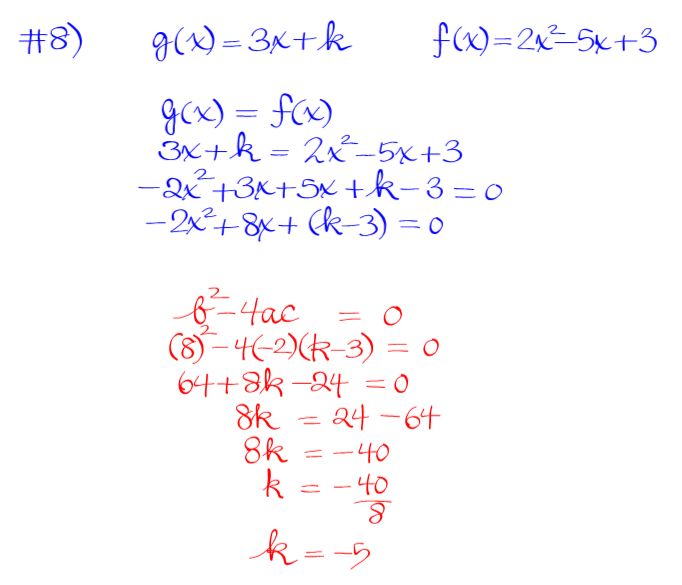 #8) g(x) = 3x + k f(x) = 2x² – 5x + 3
g(x) = f(x)
3x + k = 2x² – 5x + 3
–2x² + 3x + 5x + k – 3 = 0
–2x² + 8x + (k – 3) = 0
b² – 4ac = 0
(8)² – 4(–2)(k – 3) = 0
64 + 8k – 24 = 0
8k = 24 – 64
8k = –40
k = –40/8
k = –5